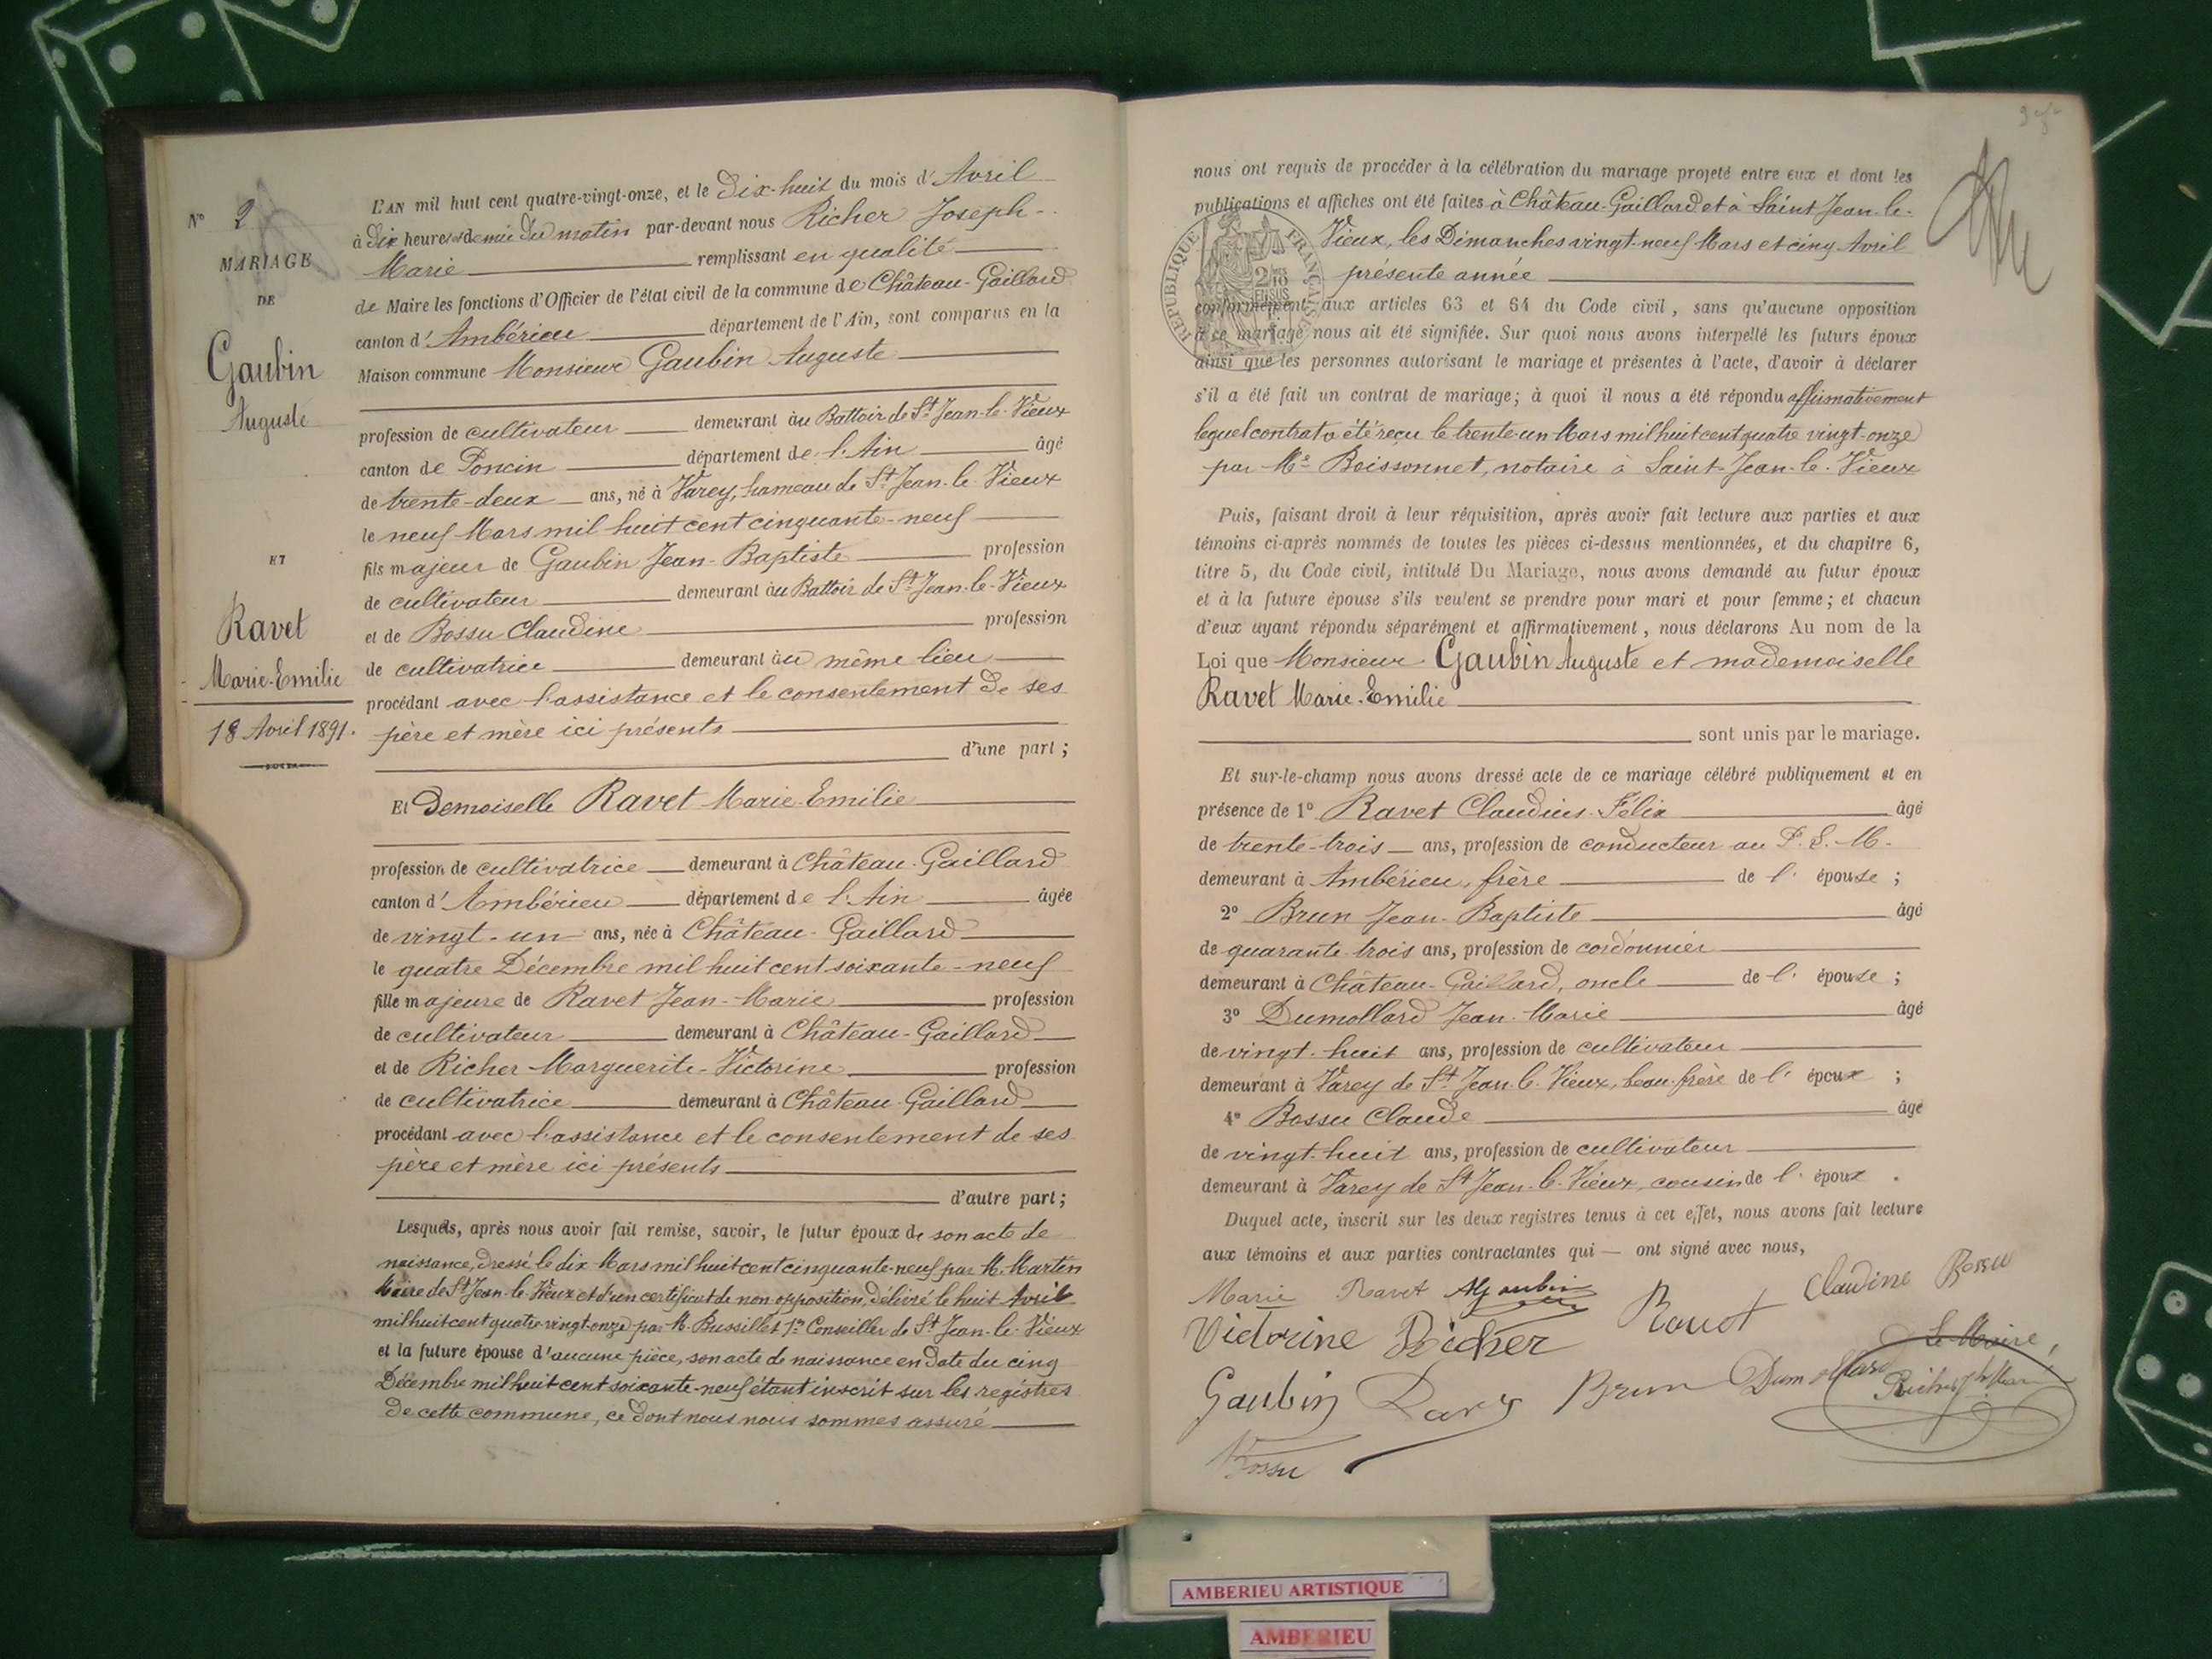 N° 2
MARIAGE
DE
Gaubin
Auguste
ET
Ravet
Marie-Emilie
18 Avril 1891.
L'AN mil huit cent quatre-vingt-onze, et le Dix-huit du mois d'Avril
à dix heures et demie du matin par-devant nous Richer Joseph-
Marie remplissant en qualité
de Maire les fonctions d'Officier de l'état civil de la commune de Château-Gaillard
canton d'Ambérieu département de l'Ain, sont comparus en la
Maison commune Monsieur Gaubin Auguste
profession de cultivateur demeurant au Battoir de St Jean-le-Vieux
canton de Poncin département de l'Ain âgé
de trente-deux ans, né à Varey, hameau de St Jean-le-Vieux
le neuf Mars mil huit cent cinquante-neuf
fils majeur de Gaubin Jean-Baptiste profession
de cultivateur demeurant au Battoir de St Jean-le-Vieux
et de Bossu Claudine profession
de cultivatrice demeurant au même lieu
procédant avec l'assistance et le consentement de ses
père et mère ici présents
d'une part;
Et Demoiselle Ravet Marie-Emilie
profession de cultivatrice demeurant à Château-Gaillard
canton d'Ambérieu département de l'Ain âgée
de vingt-un ans, née à Château-Gaillard
le quatre Décembre mil huit cent soixante-neuf
fille majeure de Ravet Jean-Marie profession
de cultivateur demeurant à Château-Gaillard
et de Richer Marguerite-Victorine profession
de cultivatrice demeurant à Château-Gaillard
procédant avec l'assistance et le consentement de ses
père et mère ici présents
d'autre part;
Lesquels, après nous avoir fait remise, savoir, le futur époux de son acte de
naissance, dressé le dix Mars mil huit cent cinquante-neuf par M. Martin
Maire de St Jean-le-Vieux et d'un certificat de non opposition, délivré le huit Avril
mil huit cent quatre-vingt-onze par M. Bussillet 1er Conseiller de St Jean-le-Vieux
et la future épouse d'aucune pièce, son acte de naissance en date du cinq
Décembre mil huit cent soixante-neuf étant inscrit sur les registres
de cette commune, ce dont nous nous sommes assuré
nous ont requis de procéder à la célébration du mariage projeté entre eux et dont les
publications et affiches ont été faites à Château-Gaillard et à Saint Jean-le-
Vieux, les Dimanches vingt-neuf Mars et cinq Avril
présente année
RÉPUBLIQUE FRANÇAISE
conformément aux articles 63 et 64 du Code civil, sans qu'aucune opposition
à ce mariage nous ait été signifiée. Sur quoi nous avons interpellé les futurs époux
ainsi que les personnes autorisant le mariage et présentes à l'acte, d'avoir à déclarer
s'il a été fait un contrat de mariage; à quoi il nous a été répondu affirmativement
lequel contrat a été reçu le trente-un Mars mil huit cent quatre vingt-onze
par Me Boissonnet, notaire à Saint-Jean-le-Vieux
Puis, faisant droit à leur réquisition, après avoir fait lecture aux parties et aux
témoins ci-après nommés de toutes les pièces ci-dessus mentionnées, et du chapitre 6,
titre 5, du Code civil, intitulé Du Mariage, nous avons demandé au futur époux
et à la future épouse s'ils veulent se prendre pour mari et pour femme; et chacun
d'eux ayant répondu séparément et affirmativement, nous déclarons Au nom de la
Loi que Monsieur Gaubin Auguste et mademoiselle
Ravet Marie-Emilie
sont unis par le mariage.
Et sur-le-champ nous avons dressé acte de ce mariage célébré publiquement et en
présence de 1° Ravet Claudius-Félix âgé
de trente-trois ans, profession de conducteur au P. L. M.
demeurant à Ambérieu, frère de l'épouse;
2° Brun Jean-Baptiste âgé
de quarante-trois ans, profession de cordonnier
demeurant à Château-Gaillard, oncle de l'épouse;
3° Dumollard Jean-Marie âgé
de vingt-huit ans, profession de cultivateur
demeurant à Varey de St Jean-le-Vieux, beau-frère de l'époux;
4° Bossu Claude âgé
de vingt-huit ans, profession de cultivateur
demeurant à Varey de St Jean-le-Vieux, cousin de l'époux.
Duquel acte, inscrit sur les deux registres tenus à cet effet, nous avons fait lecture
aux témoins et aux parties contractantes qui — ont signé avec nous,
Marie Ravet AGaubin Claudine Bossu
Victorine Richer
Le Maire,
Gaubin Brun Dumollard
Bossu
AMBERIEU ARTISTIQUE
AMBERIEU